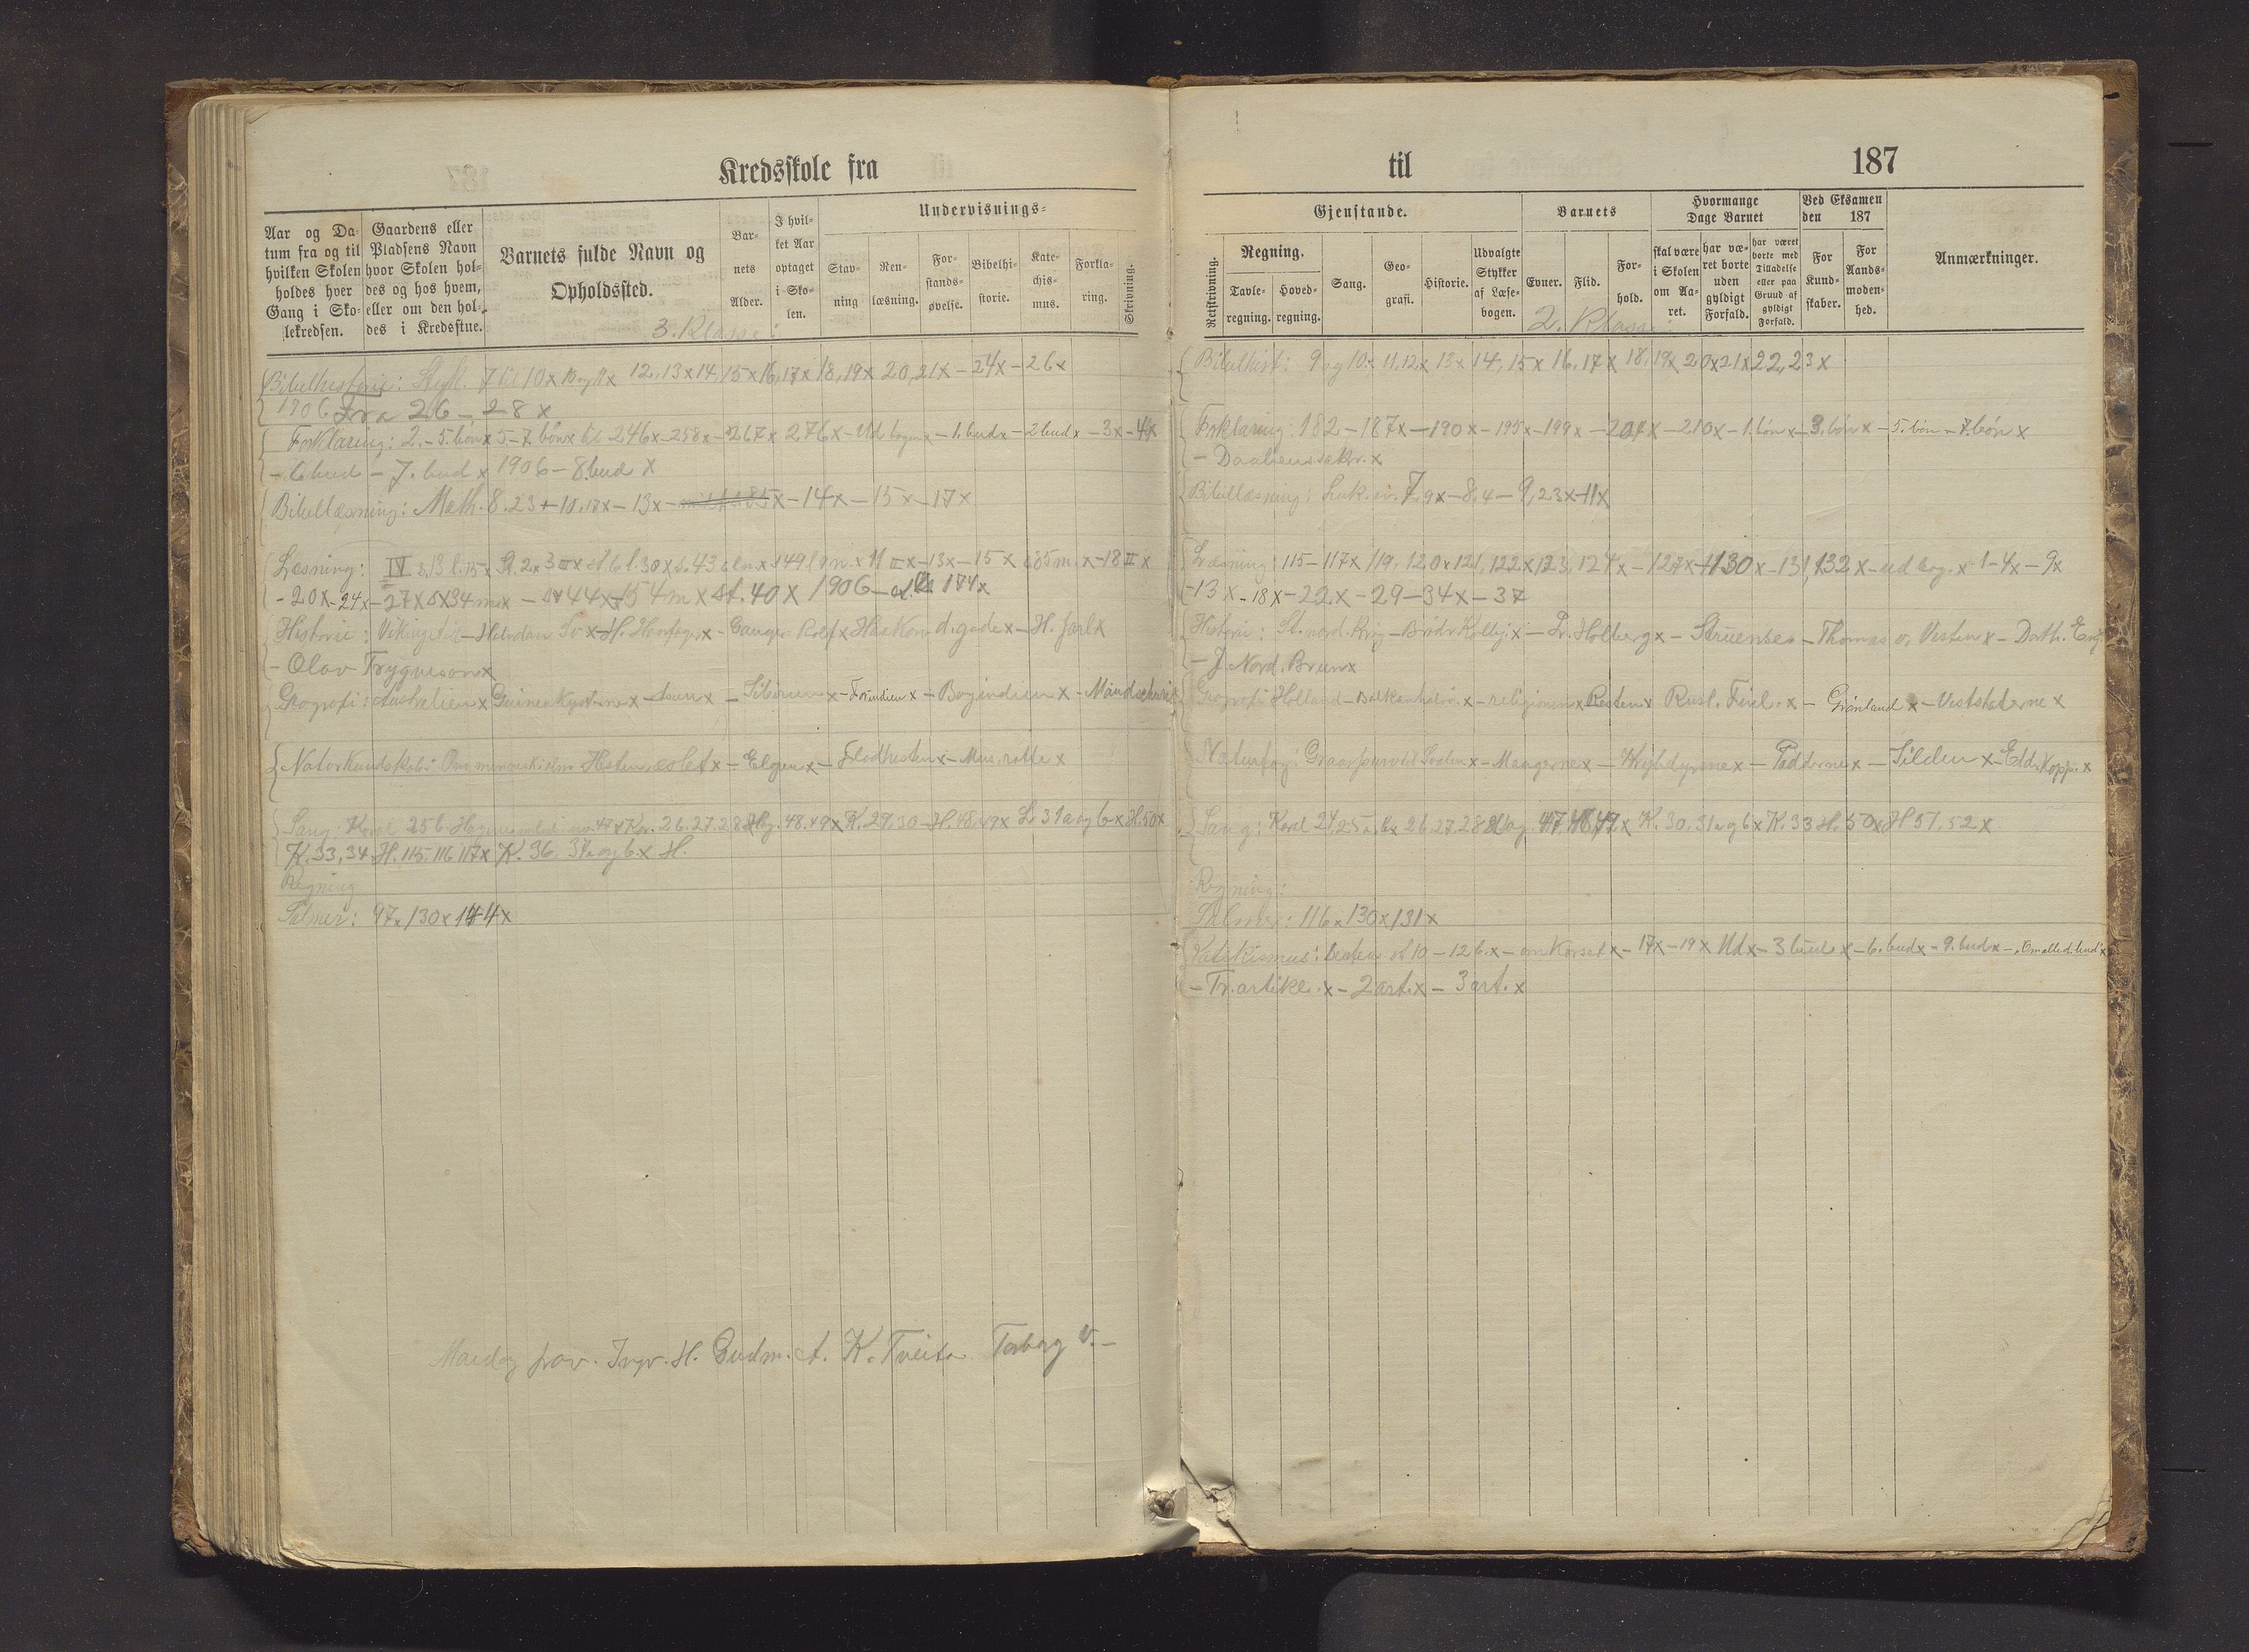 Kredsskole fra
Aar og Da-
tum fra og til
hvilken Skolen
holdes hver
Gang i Sko-
lekredsen.
Gaardens eller
Pladsens Navn
hvor Skolen hol-
des og hos hvem,
eller om den hol-
des i Kredsstue.
Barnets fulde Navn og
Opholdssted.
Bar-
nets
Alder.
I hvil-
ket Aar
optaget
i Sko-
len.
Undervisnings-
Stav-
ning
Ren-
læsning.
For-
stands-
øvelse.
Bibelhi-
storie.
Kate-
chis-
mus.
Forkla-
ring.
Skrivning.
3. Klasse:
Bibelhistorie: 7 til 10x 12, 13x 14, 15x 16, 17x 18, 19x 20, 21x - 24x - 26x
1906 Fra 26 - 28 x
Forklaring: 2. - 5. bøn x 5 - 7. bøn x til 246x - 258x - 267x 276x - ud bogen x - 1. bud x - 2 bud x - 3x - 4x
- 6 bud - 7. bud x 1906 - 8. bud x
Bibellæsning: Math. 8.23 + 10.17x - 13x - 14x - 15x - 17x
Læsning: IV s. 13 l. 15x St. 2x 3 II x st 6 l. 30x - 13x - 15x - 18 II x
- 20x - 24x - 27x - 44x 154 m x st. 40x 1906 - 174x
Historie: Vikinget. - Halvdan Sv x - H. Haarfagr x - Ganger Rolf x Haakon d. gode x - H. Jarl x
- Olav Trygveson x
Geografi: Australien x Guineakysten x - x - Sibirien x - Forindien x - Bagindien x - Mandschuri
Naturkundskab: Om mennesket Hesten, æslet x - Elgen x - Flodhesten x - Mus, rotte x
Sang: Koral 25 b. no. 47x Kor. 26. 27. 28 Hog. 48. 49x K. 29. 30 - H. 48. 49x L 31 a og b x H. 50x
K. 33, 34. H. 115. 116 117x K. 36, 37 a og b. x H.
Regning
Salmer: 97x 130x 144x
Mardag prov. Ingv. H. Gudm. A. K. Tveita Torborg V. -
til
187
Gjenstande.
Retskrivning.
Regning.
Tavle-
regning.
Hoved-
regning.
Sang.
Geo-
grafi.
Historie.
Udvalgte
Stykker
af Læse-
bogen.
Barnets
Evner.
Flid.
For-
hold.
Hvormange
Dage Barnet
skal være
i Skolen
om Aa-
ret.
har væ-
ret borte
uden
gyldigt
Forfald.
har været
borte med
Tilladelse
eller paa
Grund af
gyldigt
Forfald.
Ved Eksamen
den 187
For
Kund-
skaber.
For
Aands-
moden-
hed.
Anmærkninger.
2. Klasse:
Bibelhist: 9 og 10x 11, 12x 13x 14, 15x 16, 17x 18, 19x 20x 21x 22, 23x
Forklaring: 182 - 187x - 190x - 195x - 199x - 207x - 210x - 1. bøn x - 3. bøn x - 5. bøn - 7. bøn x
- Daabens sakr. x
Bibellæsning: Luk. 7, 9x - 8, 4 - 9, 23x - 11x
Læsning: 115 - 117x 119, 120x 121, 122x 123, 124x - 127x - 130x - 131, 132x - ud bog. x 1 - 4x - 9x
- 13x - 18x - 22x - 29 - 34x - 37
Historie: St. nord. krig - Brødr. Kolbj. x - L. Holberg x - Struensee - Thomas v. Vesten x - Doth. Eng
- J. Nord. Brun x
Geografi: Holland - Balkanhalvø. x - religionen x Resten x Rusl. Finl. x - Grønland x - Veststaterne x
Naturfag: Graaspurv til Svalen x - Maagerne x - Krybdyrene x - Padderne x - Silden x - Edd.kopp. x
Sang: Koral 24, 25 a. b x 26, 27, 28 Hog. 47, 48, 49x K. 30, 31 a og b x K. 33 H. 50x H 51, 52x
Regning:
Salmer: 116x 130x 131x
Katekismus: st 10 - 12 b. x - om Korset x - 17x - 19x Ud x - 3 bud x - 6. bud x - 9. bud x - Om alle d. bud x
- Tr. artikl. x - 2 art. x - 3 art. x